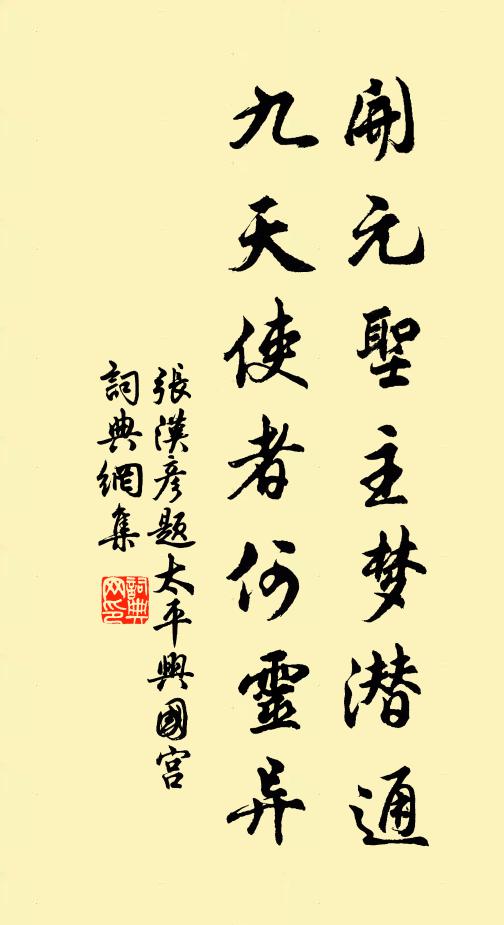 開元聖主梦潜通
九天使者何靈异
張漢彦題太平興國宫
詞典網集
詞典
网印